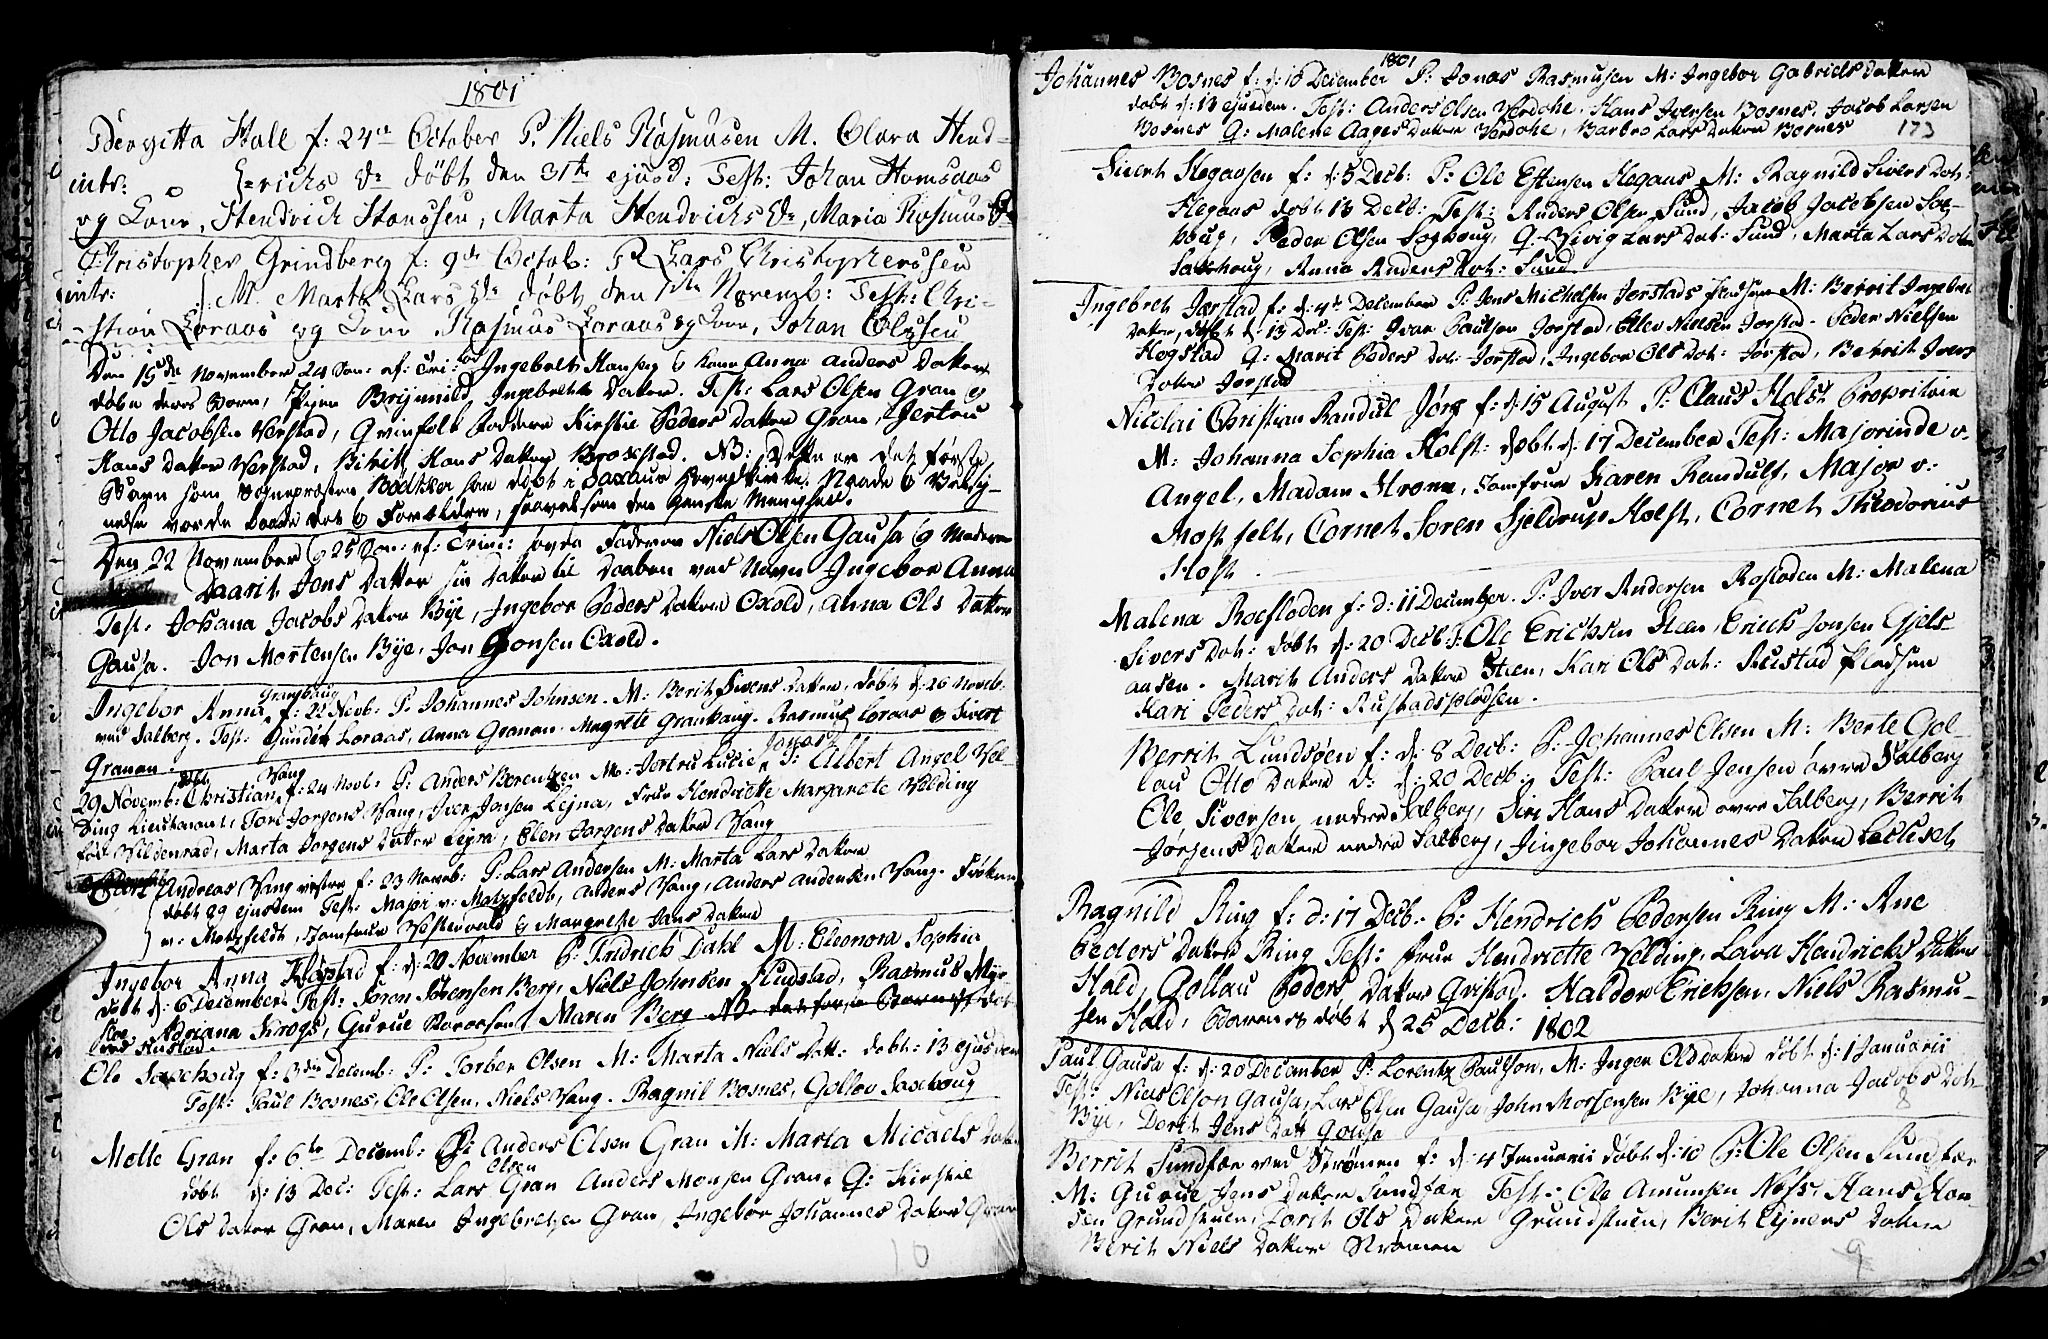 1801
Bergitta Hall f: 24de October P. Niels Rasmusen M. Olava Hend-
ints: Erichs Dr døbt den 31te ejusd: Test: Johan Homsaas
og Kone, Hendrich Hanssen, Marta Hendrichs Dr, Maria Rasmus Dr
Christopher Grindberg f: 9de Octob: P. Lars Christophersen
ints: M. Marta Lars Dr døbt den 1ste Novemb: Test: Chri-
stian Loraas og Kone, Rasmus Loraas og Kone, Johan Olsen
Den 15de November 24 Son: ef: Tri: lod Ingebret Hansen og Kone Anna Anders Datter
døbe deres Barn, Pigen Ingebrets Datter. Test: Lars Olsen Gran og
Otto Jacobsen Verstad, Qvinfolk Faddere Kirstie Peders Datter Gran, Gertru
Hans Datter Verstad, Birit Hans Datter Brokstad. NB: Dette er det første
Barn som Sognepræsten Bødtker har døbt i Hovedkirke. Naade og Velsig-
nelse vorde baade det og Forældre, saavelsom den ganske Menighed.
Den 22 November 25 Son: ef: Trin: Faderen Niels Olsen Gausa og Moderen
Daarit Jens Datter sin Datter til Daaben ved Navn Ingebor Anna
Test: Johana Jacobs Datter Bye, Ingebor Peders Datter Oxold, Anna Ols Datter
Gausa. Jon Mortensen Bye, Jon Jonsen Oxold.
Granhaug
Ingebor Anna f: 22 Novb: P: Johannes Johnsen. M: Berit Sivers Datter, døbt d: 26 Novebr
ved Salberg. Test: Gunder Loraas, Anna Granan. Magrete Granhaug. Rasmus Loraas og Sivert
Granan.
29 Novemb: døbt Christian Vang f: 24 Novb: P: Anders Berentzen M: Jertru Lucie Jonas D T: Elbert Angel Vel-
ding Lieutenant, Tore Jorgens Vang, Iver Jensen Lejna, Frue Hendriette Margarete Velding
fød Vildenrad, Marta Jorgens Datter Lejra, Elen Jorgens Datter Vang
Andreas Vang vestre f: 23 Noveb: P: Lars Andersen M: Marta Lars Datter
døbt 29 ejusdem Test: Major v: Motzfeldt, Anders Vang, Anders Andersen Vang. Frøken
v: Motzfeldt, Jomfrue Vesterwald og Margrethe Jans Datter
Ingebor Anna f: d: 20 November P: Fridrich Dahl M: Eleonora Sophia
døbt d: 6 December Test: Søren Sørensen Berg, Niels Johnsen Hustad, Rasmus Myr
Adriana Krogs, Gurue Marin Berg
ved Hustad.
Ole Saxhoug f: 3die Decemb: P: Torber Olsen M: Marta Niels Datt: døbt: 13 ejusdem
Test: Paul Bosnes, Ole Olsen, Niels Vang. Ragnil Bosnes, Gollov Saxhoug
Melle Gran f: 6te Decemb: P: Anders Olsen Gran M: Marta Micaels Datter
døbt d: 13 Dec: Test: Lars Olsen Gran Anders Monsen Gran. Q: Kirstie
Ols Datter Gran, Maren Ingebretzen Gran, Ingebor Johannes Datter Gran
10
1801
Johannes Bosnes f: d: 10 December P: Jonas Rasmusen M: Ingebor Gabriels Datter
døbt d: 13 ejusdem. Test: Anders Olsen Verdahl, Hans Iversen Bosnes, Jacob Larsen
Bosnes Q: Malene Aages Datter Verdahl, Barbro Lars Datter Bosnes 173
Sivert Hegaasen f: d: 5 Decb: P: Ole Estensen Hegaas M: Ragnild Sivers Dot:
Hegaas døbt 13 Decb: Test: Anders Olsen Sund, Jacob Jacobsen Sax-
houg, Peder Olsen Saxhoug, Q: Sivig Lars Dot: Sund, Marta Lars Doter
Saxhoug, Anna Anders Dot: Sund.
Ingebret Jørstad f: d: 4de December P: Jens Michelsen Jørstads pladsen M: Berrit Ingebret
Datter, døbt d: 13 Dec: Test: Ivar Paulsen Jørstad, Ellev Nielsen Jørstad. Peder Nielsen
Hegstad Q: Marit Peders Dot: Jørstad, Ingebor Ols Dot: Jørstad, Berrit Ivers
Doter Jørstad
Nicolai Christian Randul Jørg f: d: 15 August P: Claus Holst Proprietair
M: Johanna Sophia Holst: døbt d: 17 December Test: Majorinde v.
Angel, Madam Krone, Jomfrue Karen Randulf, Major v:
Mostfelt, Cornet Soren Sjeldrup Holst, Cornet Theodorius
Host.
Malena Rosfloden f: d: 11 December. P: Iver Andersen Rosloden M: Malena
Sivers Dot: døbt d: 20 Decb: Ole Erichsen Steen, Erich Jonsen Gjels-
aasen. Marit Anders Datter Steen, Kari Ols Dot: Rustad pladsen
Kari Peders Dot: Rustadspladsen.
Berrit Lundsøen f: d: 8 Decb: P: Johannes Olsen M: Berte Gol-
lau Otto Datter D: d: 20 Decb: Test: Paul Jensen øvre Salberg
Ole Siversen nedre Salberg, Siri Hans Datter øvre Salberg, Berrit
Jørgens Datter nedre Salberg, Jingebor Johannes Datter
Ragnild Ring f: d: 17 Decb: P: Hendrich Pedersen Ring M: Ane
Peders Datter Ring Test: Frue Hendriette Velding, Lava Hendrichs Datter
Hald, Gollau Peders Datter Gristad. Haldor Erichsen, Niels Rasmu-
sen Hald, Barnet døbt d 25 Decb: 1802
Paul Gausa f: d: 20 December P: Lorentz Paulson, M: Inger Ols Datter døbt d: 1 Januarii
Test: Niels Olson Gausa, Lars Elsen Gausa, John Mortensen Bye, Johanna Jacobs Dot:
Bye, Dorit Jens Datt Gausa 8
Berrit Sundfær ved Strømen f: d: 4 Januarii døbt d: 10 P: Ole Olsen Sundfær
M: Gurue Jens Datter Sundfær Test: Ole Amunsen Næss, Hans Han-
sen Grundstuen, Dorit Ols Datter Grundstuen, Berit Ejners Datter
Berit Niels Datter Strømen
9